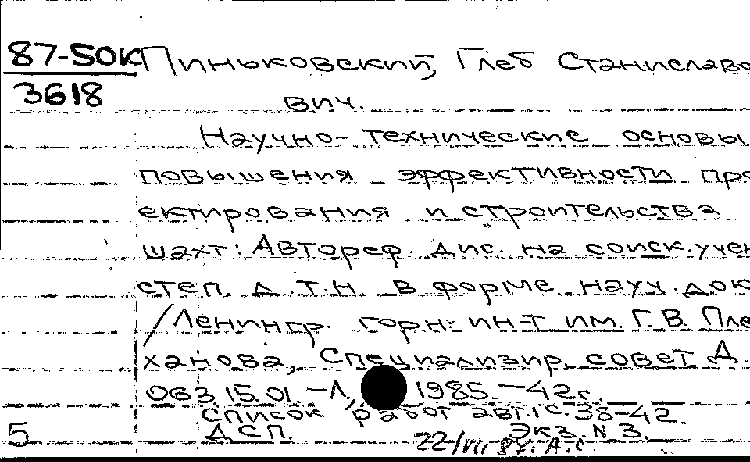 87-50К Пиньковский, Глеб Станиславо
3618
вич.
Научно-технические основы
повышения эффективности про
ектирования и строительства
шахт: Автореф. дис. на соиск. учен
степ. д.т.н. в форме науч. док
/Ленингр. горн. ин-т им. Г.В. Пле
ханова, Специализир. совет Д
063.15.01 -Л, 1985 -42с.
список работ авт.: с.38-42.
5 ДСП. Экз. N 3.